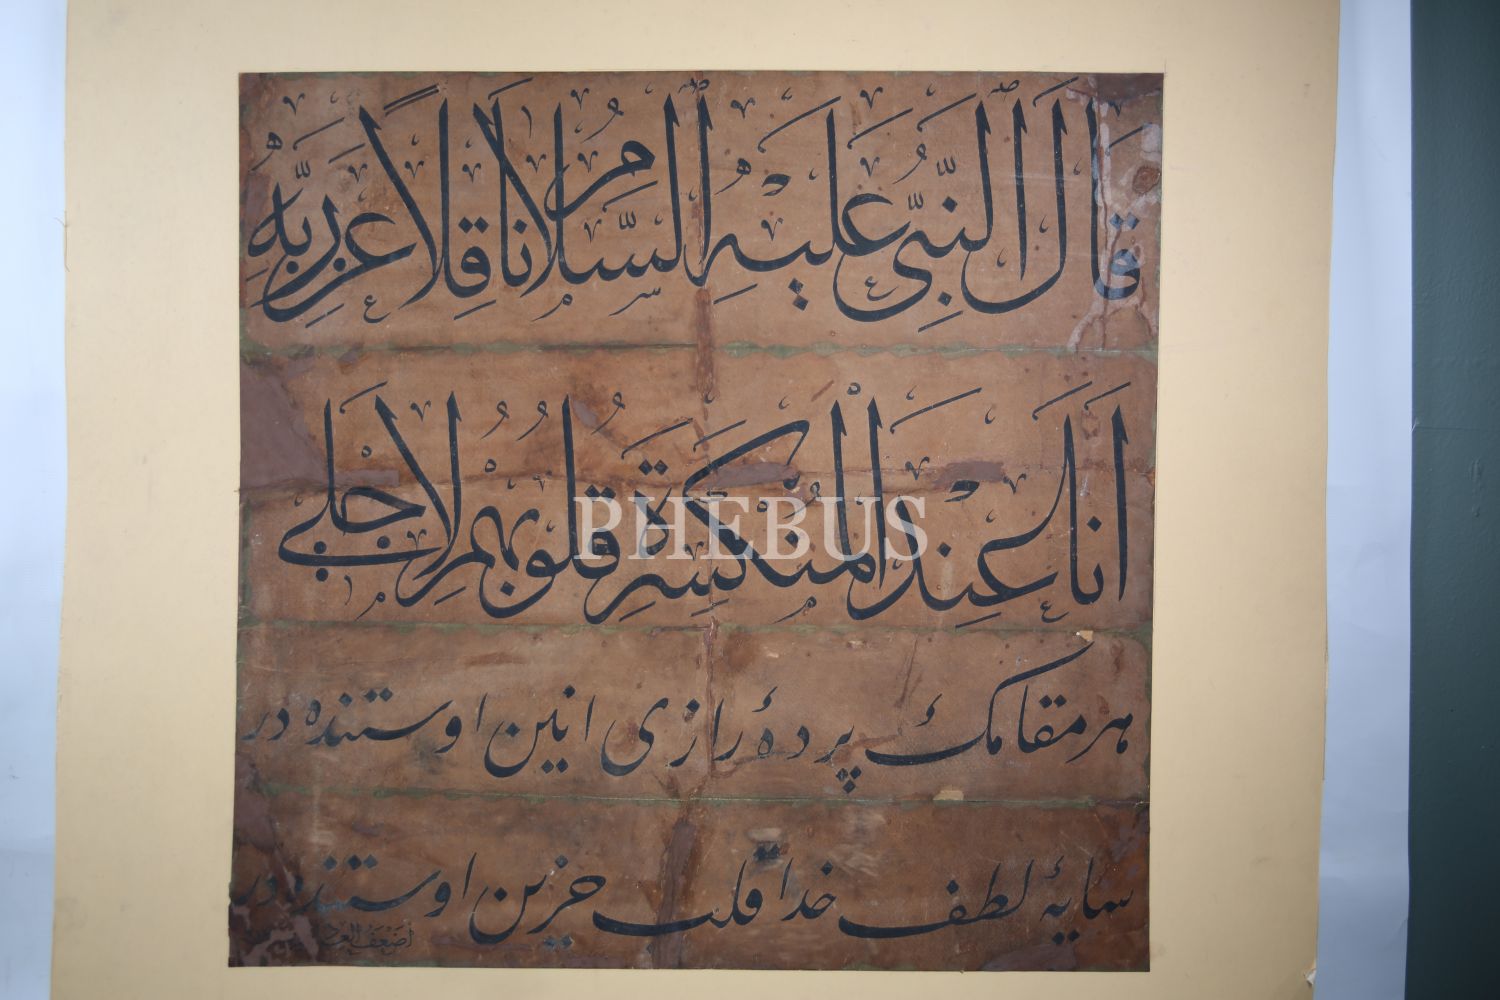 قَالَ النَّبِىُّ عَلَيْهِ السَّلَامُ نَاقِلاً عَنْ رَبِّهِ
اَنَا عِنْدَ الْمُنْكَسِرَةِ قُلُوبُهُمْ لِاَجْلِى
هر مقامك پردهٔ رازى انين اوستنده در
سايهٔ لطف خدا قلب حزين اوستنده در
اضعف العباد
PHEBUS